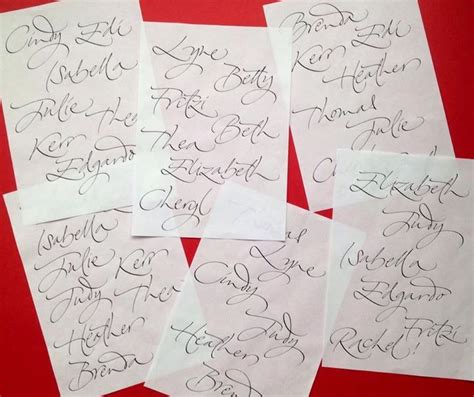 Cindy Edi
Isabella
Julie Thea
Kerr
Edgardo
Lyne
Betty
Fritzi
Thea Beth
Elizabeth
Cheryl
Brenda
Kerr
Heather
Thomas
Julie
Isabella
Julie Kerr
Judy Thea
Heather
Brenda
Lyne
Cindy
Judy
Heather
Brenda
Elizabeth
Judy
Isabella
Edgardo
Fritzi
Rachel!